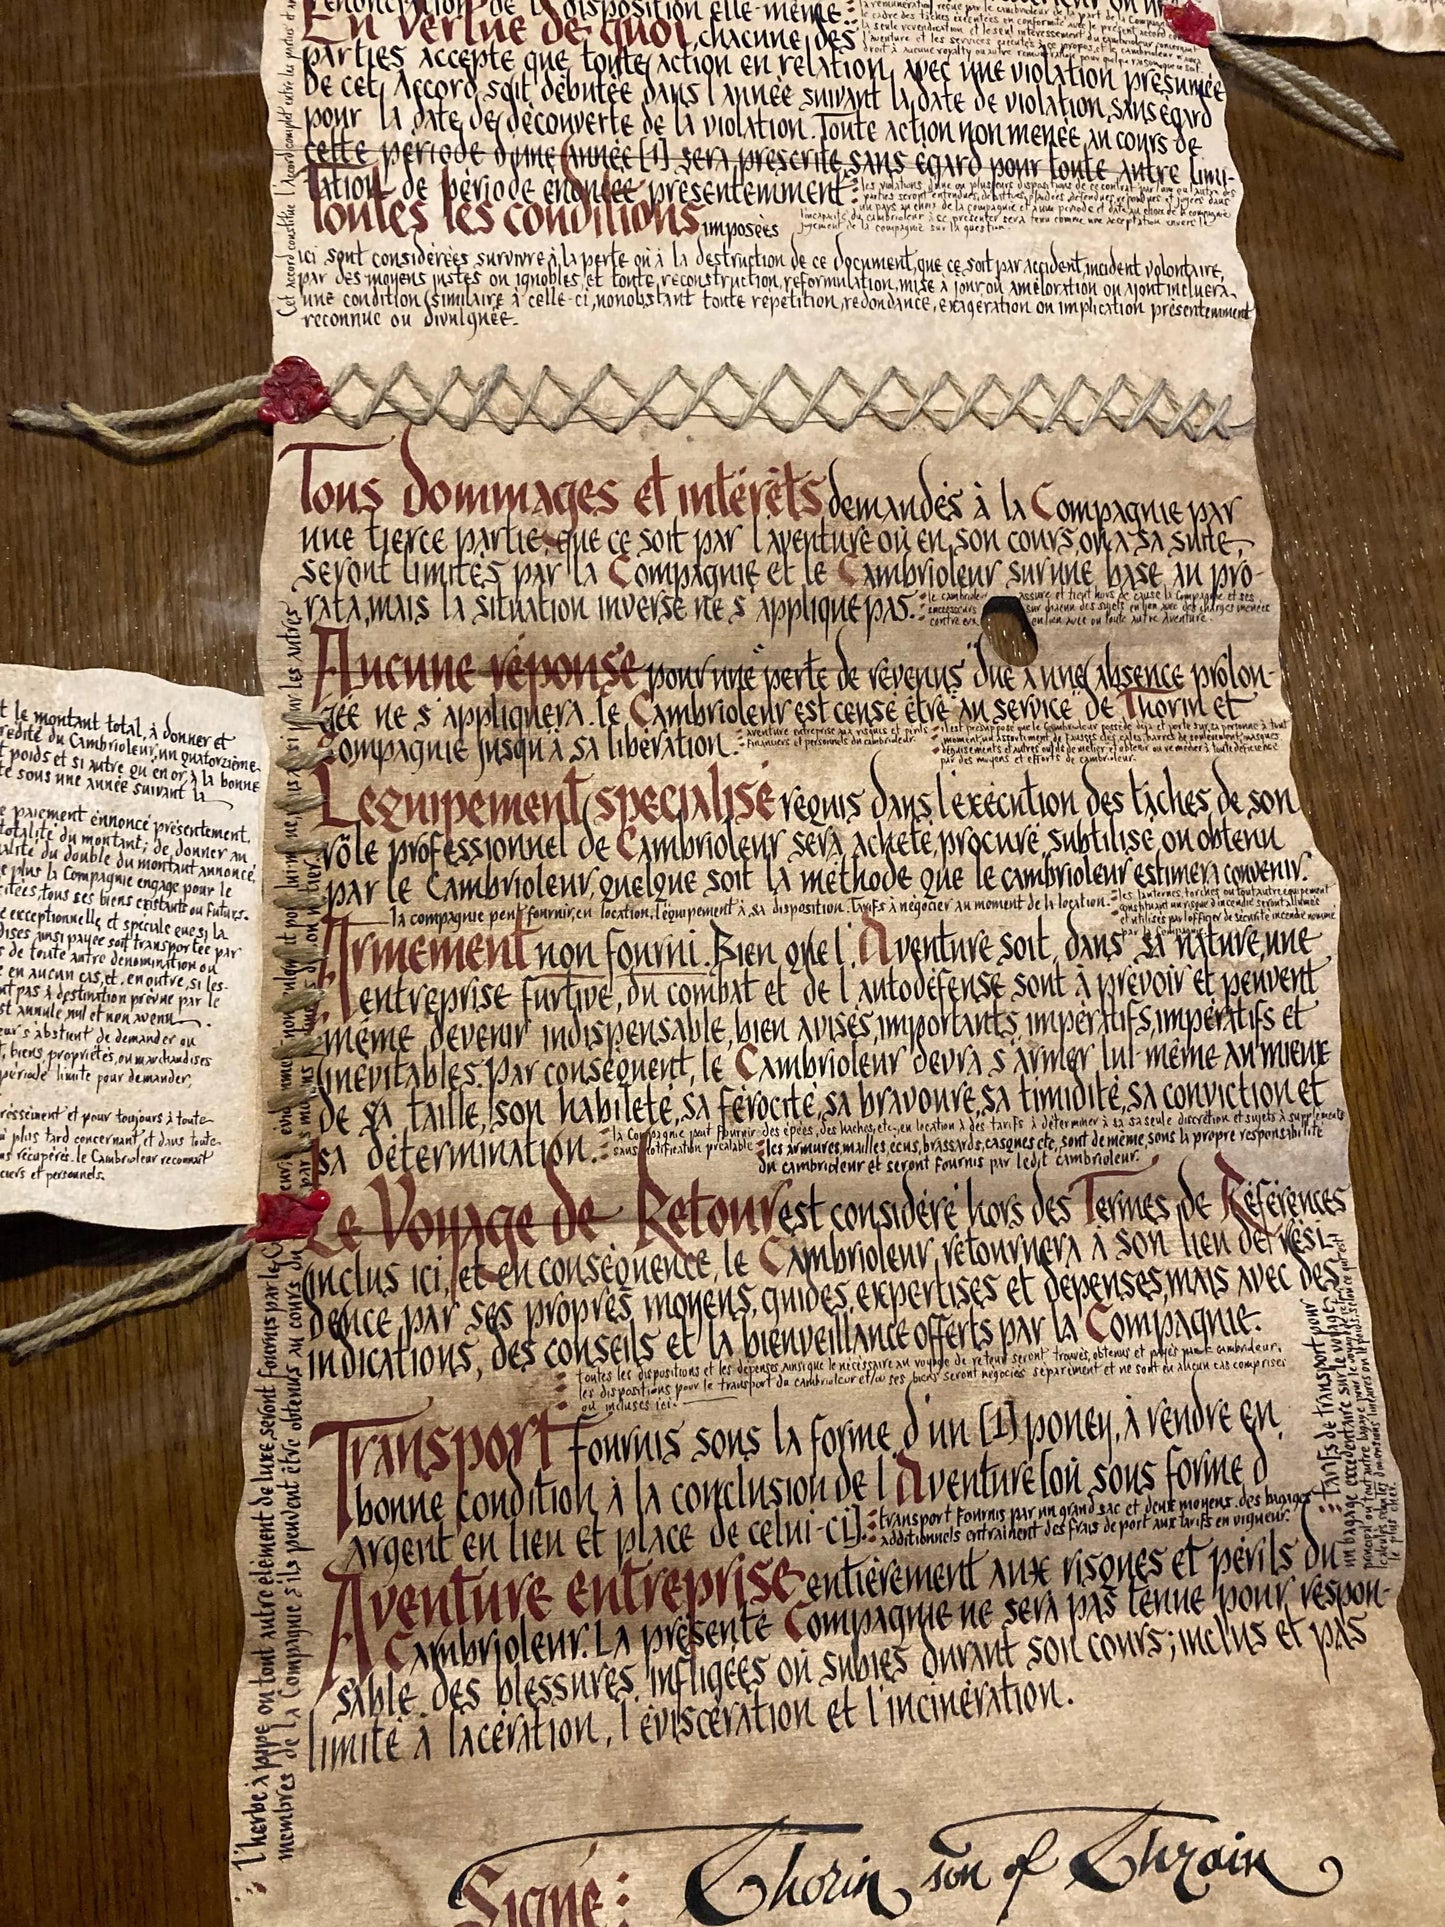 énonciation de la disposition elle-même
En vertue de quoi, chacune des
parties accepte que toute action en relation avec une violation présumée
de cet Accord soit débutée dans l'année suivant la date de violation, sans égard
pour la date de découverte de la violation. Toute action non menée au cours de
cette période d'une année [1] sera prescrite, sans égard pour toute autre limi-
tation de période énoncée présentemment
les violations d'une ou plusieurs dispositions de ce contrat par l'une ou l'autre des
parties seront entendues, débattues, plaidées, défendues, répondues et jugées dans
un pays au choix de la compagnie et a une période et date au choix de la compagnie
l'incapacité du cambrioleur à se présenter sera tenu comme une acceptation envers le
jugement de la compagnie sur la question.
Toutes les conditions imposées
ici sont considérées survivre à la perte ou à la destruction de ce document, que ce soit par accident, incident volontaire,
par des moyens justes ou ignobles, et toute reconstruction, reformulation, mise à jour ou amélioration ou ajout incluera
une condition similaire à celle-ci, nonobstant toute répétition, redondance, exagération ou implication présentemment
reconnue ou divulguée.
Cet accord constitue l'Accord complet entre les parties
Tous dommages et intérêts demandés à la Compagnie par
une tierce partie, que ce soit par l'aventure ou en son cours, ou à sa suite,
seront limités par la Compagnie et le Cambrioleur sur une base au pro-
rata, mais la situation inverse ne s'applique pas.
le cambrioleur assure et tient hors de cause la Compagnie et ses
successeurs sur chacun des sujets en lien avec des charges menées
contre eux en lien avec ou toute autre Aventure.
Aucune réponse pour une "perte de revenus" due à une absence prolon-
gée ne s'appliquera. Le Cambrioleur est censé être "au service" de Thorin et
Compagnie jusqu'à sa libération.
aventure entreprise aux risques et périls
financiers et personnels du cambrioleur.
il est présupposé que le Cambrioleur possède déjà et porte sur sa personne à tout
moment, un assortiment de fausses clés, cales, barres de soulèvement, masques,
déguisements et autres outils de métier et obtenir ou remédier à toute déficience
par des moyens et efforts de cambrioleur.
L'équipement spécialisé requis dans l'exécution des tâches de son
rôle professionnel de Cambrioleur sera acheté, procuré, subtilisé ou obtenu
par le Cambrioleur, quelque soit la méthode que le cambrioleur estimera convenir.
la compagnie peut fournir, en location, l'équipement à sa disposition. Tarifs à négocier au moment de la location.
les lanternes, torches ou tout autre équipement
constituant un risque d'incendie seront allumés
et utilisés par l'officier de sécurité incendie nommé
par la Compagnie.
Armement non fourni. Bien que l'Aventure soit, dans sa nature, une
entreprise furtive, du combat et de l'autodéfense sont à prévoir et peuvent
même devenir indispensable, bien avisés, importants, impératifs, impératifs et
inévitables. Par conséquent, le Cambrioleur devra s'armer lui-même au mieux
de sa taille, son habileté, sa férocité, sa bravoure, sa timidité, sa conviction et
sa détermination.
la Compagnie peut fournir des épées, des haches, etc, en location à des tarifs à déterminer à sa seule discrétion et sujets à suppléments
sans notification préalable
les armures, mailles, écus, brassards, casques etc, sont de même, sous la propre responsabilité
du cambrioleur et seront fournis par ledit cambrioleur.
Le Voyage de Retour est considéré hors des Termes de Références
inclus ici, et en conséquence, le Cambrioleur retournera à son lieu de rési-
dence par ses propres moyens, guides, expertises et dépenses, mais avec des
indications, des conseils et la bienveillance offerts par la Compagnie.
toutes les dispositions et les dépenses ainsi que le nécessaire au voyage de retour seront trouvés, obtenus et payés par le cambrioleur.
les dispositions pour le transport du cambrioleur et/ou ses biens seront négociés séparément et ne sont en aucun cas comprises
ou incluses ici.
Transport fournis sous la forme d'un [1] poney, à rendre en
bonne condition à la conclusion de l'Aventure [ou sous forme d'
argent en lieu et place de celui-ci].
transport fournis par un grand sac et deux moyens. des bagages
additionnels entraînent des frais de port aux tarifs en vigueur.
tarifs de transport pour
un bagage excédentaire sur le voyage
Aventure entreprise entièrement aux risques et périls du
Cambrioleur. La présente Compagnie ne sera pas tenue pour respon-
sable des blessures infligées ou subies durant son cours; inclus et pas
limité à lacération, l'éviscération et l'incinération.
l'herbe à pipe ou tout autre élément de luxe, seront fournis par le C
membres de la Compagnie s'ils peuvent être obtenus au cours du
Signé: Thorin son of Thrain
t le montant total, à donner et
crédité du Cambrioleur, un quatorzième
poids et si autre qu'en or, à la bonne
té sous une année suivant la
e paiement énnoncé présentement,
totalité du montant; de donner au
alité du double du montant annoncé,
e plus la Compagnie engage pour le
citées, tous ses biens existants ou futurs.
e exceptionnelle et spéciale que si la
dises ainsi payée soit transportée par
s de toute autre dénomination ou
e en aucun cas, et, en outre, si les-
nt pas à destination prévue par le
st annulé, nul et non avenu.
eur s'abstient de demander ou
t, biens, propriétés, ou marchandises
période limite pour demander,
ressément et pour toujours à toute
i plus tard concernant et dans toute
ns récupérés. le Cambrioleur reconnait
ciers et personnels.